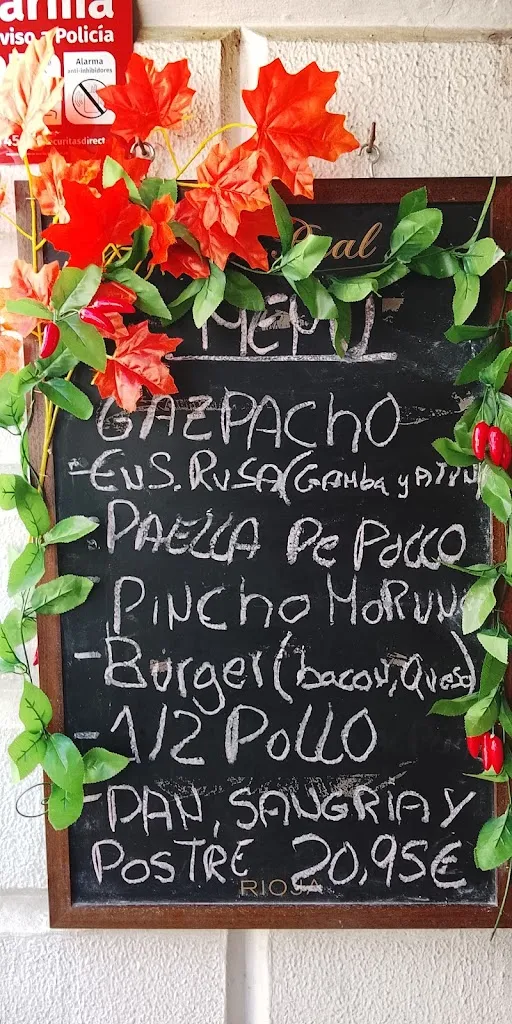 arma
viso a Policía
Alarma
anti-inhibidores
securitasdirect
Real
MENÚ
GAZPACHO
-ENS. RUSA (GAMBA y ATUN
PAELLA De Pollo
PINCHO MORUNO
-Burger (bacon, Queso)
-1/2 POLLO
-PAN, SANGRIA Y
POSTRE 20,95€
RIOJA